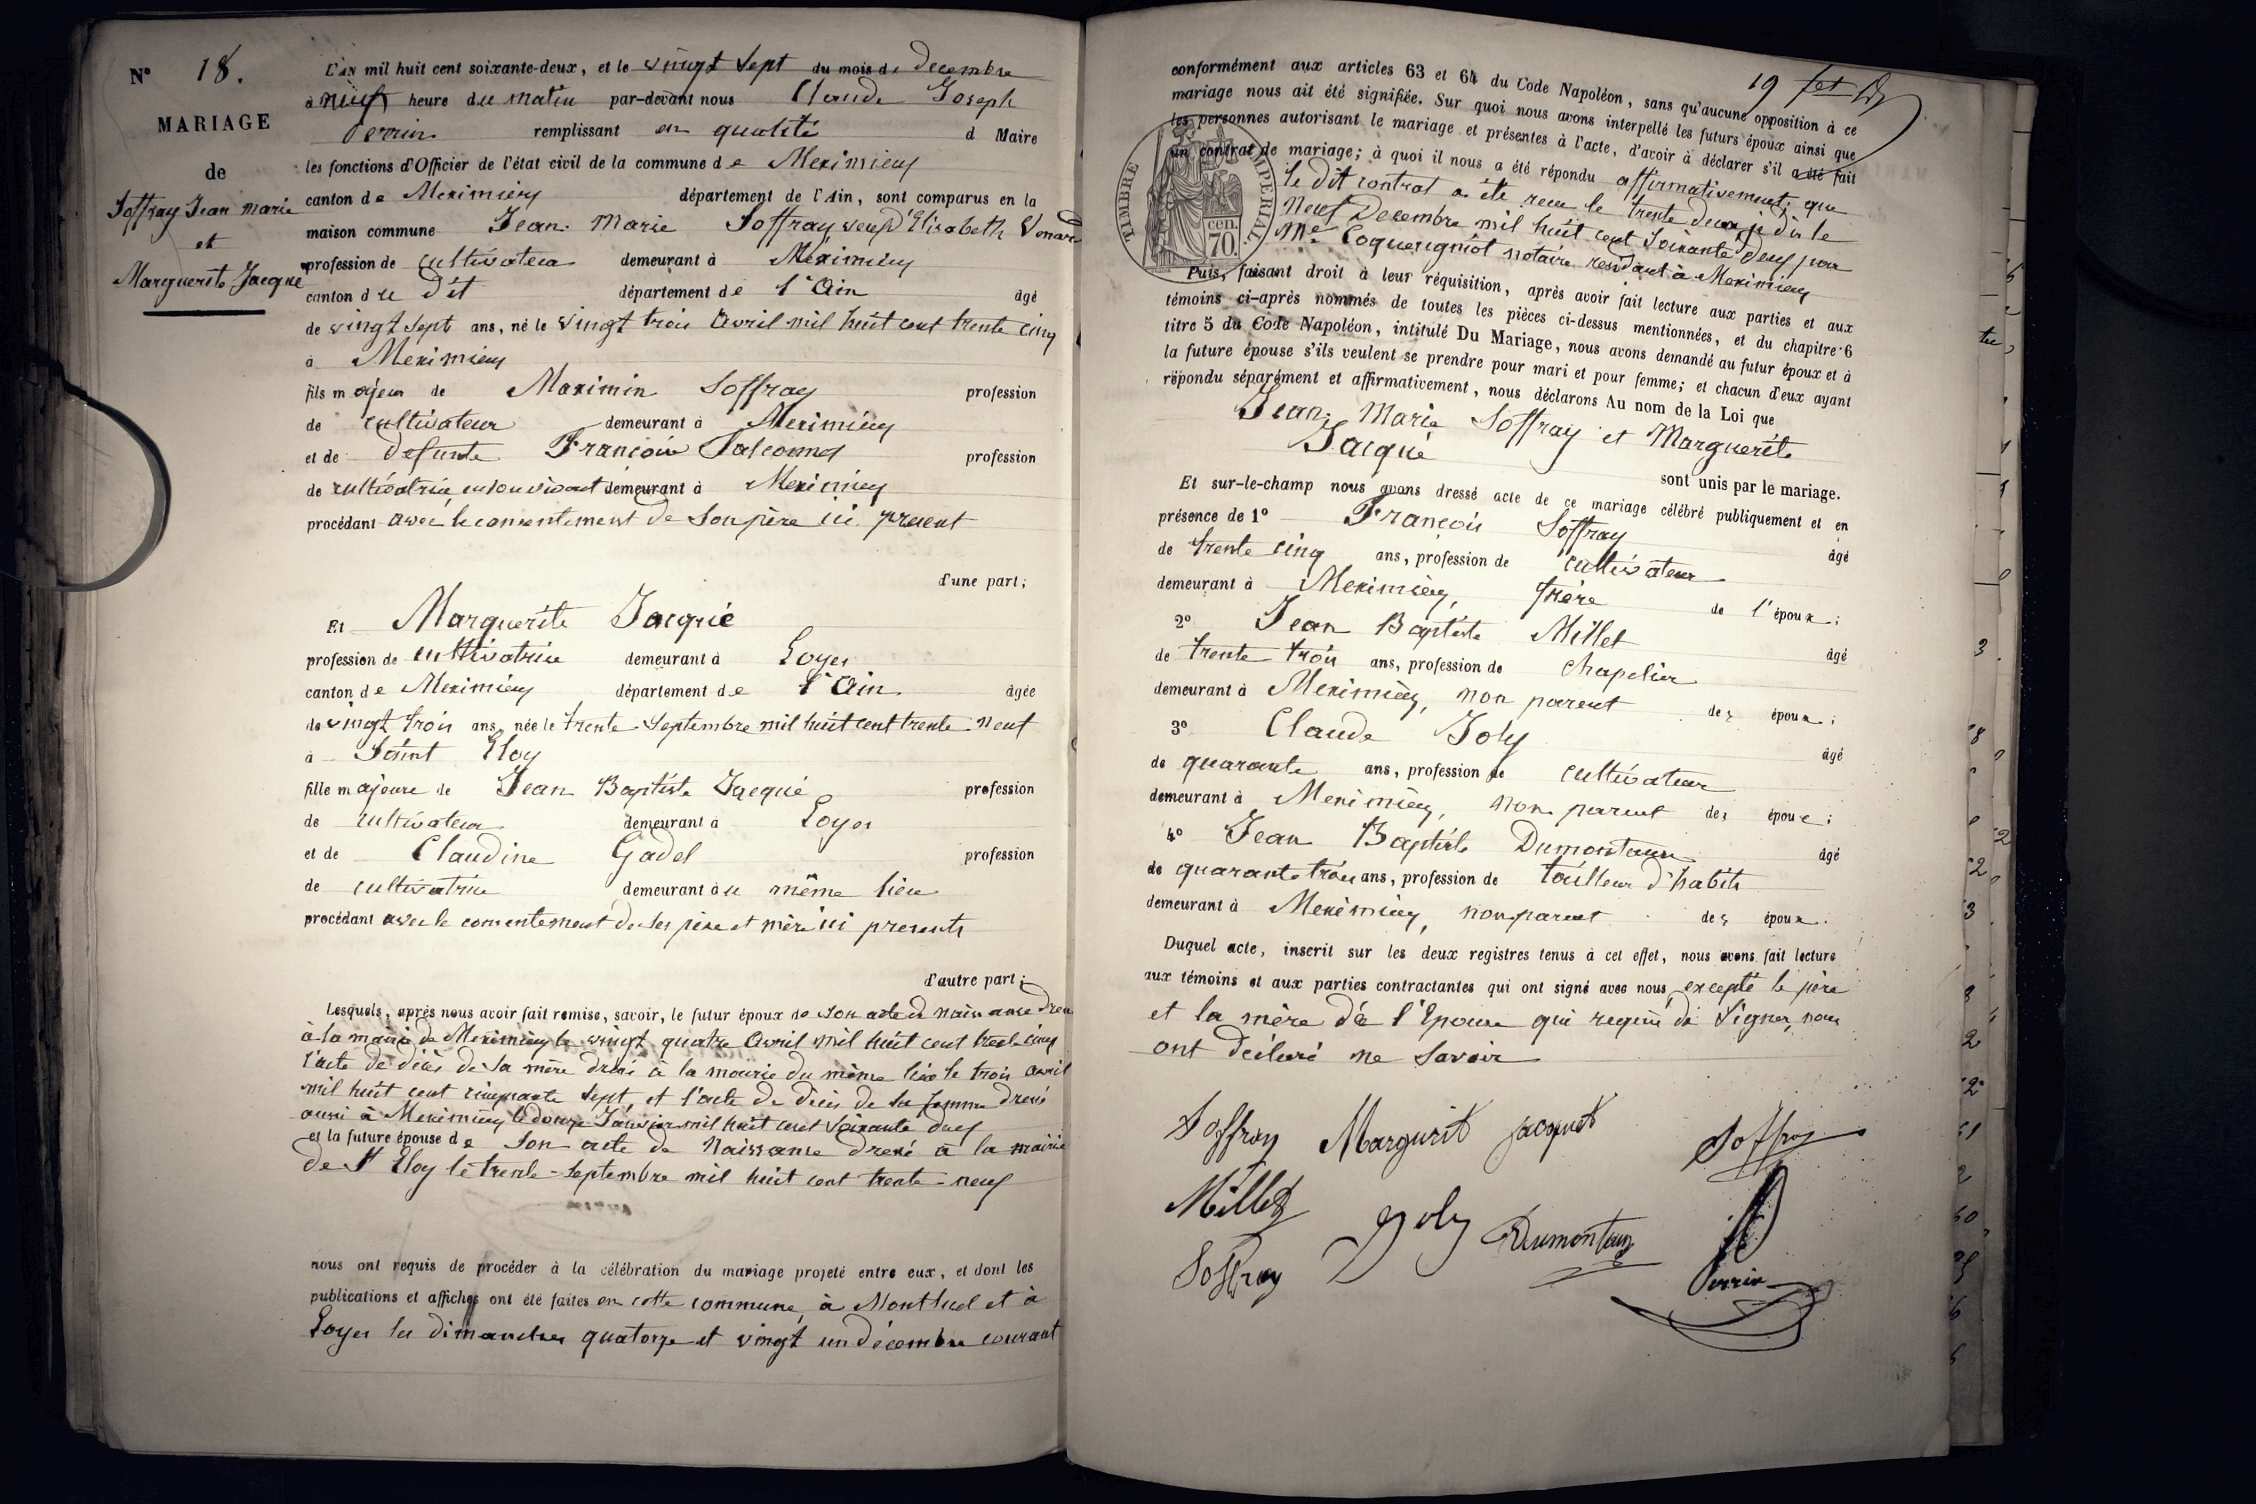 N° 18.
MARIAGE
de
Soffray Jean marie
et
Marguerite Jacqué
L'AN mil huit cent soixante-deux, et le vingt sept du mois de Decembre
à neuf heure du matin par-devant nous Claude Joseph
Perrin remplissant en qualité d Maire
les fonctions d'Officier de l'état civil de la commune de Meximieux
canton de Meximieux département de l'Ain, sont comparus en la
maison commune Jean Marie Soffray veuf d'Elisabeth
profession de cultivateur demeurant à Méximieux
canton du dit département de l'Ain âgé
de vingt sept ans, né le vingt trois Avril mil huit cent trente cinq
à Meximieux
fils majeur de Maximin Soffray profession
de cultivateur demeurant à Meximieux
et de defunte Françoise Falconnet profession
de cultivatrice, en son vivant demeurant à Meximieux
procédant avec le consentement de son père ici présent
d'une part;
Et Marguerite Jacquié
profession de cultivatrice demeurant à Loyes
canton de Meximieux département de l'Ain âgée
de vingt trois ans, née le trente Septembre mil huit cent trente neuf
à Saint Eloy
fille majeure de Jean Baptiste Jacqué profession
de cultivateur demeurant a Loyes
et de Claudine Gadel profession
de cultivatrice demeurant au même lieu
procédant avec le consentement de ses père et mère ici presents
d'autre part;
Lesquels, après nous avoir fait remise, savoir, le futur époux de son acte de naissance
à la mairie de Meximieux le vingt quatre Avril mil huit cent trente cinq
l'acte de décès de sa mère dressé à la mairie du même lieu le trois avril
mil huit cent cinquante sept, et l'acte de décès de sa femme dressé
aussi à Meximieux le douze Janvier mil huit cent soixante deux
et la future épouse de son acte de Naissance dressé à la mairie
de St Eloy le trente Septembre mil huit cent trente neuf
nous ont requis de procéder à la célébration du mariage projeté entre eux, et dont les
publications et affiches ont été faites en cette commune, à Montluel et à
Loyes les dimanches quatorze et vingt un décembre courant
19
conformément aux articles 63 et 64 du Code Napoléon, sans qu'aucune opposition à ce
mariage nous ait été signifiée. Sur quoi nous avons interpellé les futurs époux ainsi que
les personnes autorisant le mariage et présentes à l'acte, d'avoir à déclarer s'il a été fait
un contrat de mariage; à quoi il nous a été répondu affirmativement; que
TIMBRE IMPERIAL
70. cen.
le dit contrat a été recu le trente deux, je dis le
neuf Decembre mil huit cent Soixante deux par
Me Coquerigniot notaire residant à Meximieux
Puis, faisant droit à leur réquisition, après avoir fait lecture aux parties et aux
témoins ci-après nommés de toutes les pièces ci-dessus mentionnées, et du chapitre 6
titre 5 du Code Napoléon, intitulé Du Mariage, nous avons demandé au futur époux et à
la future épouse s'ils veulent se prendre pour mari et pour femme; et chacun d'eux ayant
répondu séparément et affirmativement, nous déclarons Au nom de la Loi que
Jean Marie Soffray et Marguerite
Jacqué
sont unis par le mariage.
Et sur-le-champ nous avons dressé acte de ce mariage célébré publiquement et en
présence de 1° François Soffray âgé
de trente cinq ans, profession de cultivateur
demeurant à Meximieux, frère de l'époux;
2° Jean Baptiste Millet âgé
de trente trois ans, profession de chapelier
demeurant à Meximieux, non parent des époux;
3° Claude Joly âgé
de quarante ans, profession de cultivateur
demeurant à Meximieux, non parent des époux;
4° Jean Baptiste Dumontaux âgé
de quarante trois ans, profession de tailleur d'habits
demeurant à Meximieux, non parent des époux.
Duquel acte, inscrit sur les deux registres tenus à cet effet, nous avons fait lecture
aux témoins et aux parties contractantes qui ont signé avec nous, excepté le père
et la mère de l'épouse qui requis de signer, nous
ont déclaré ne savoir
Soffray Margurit jacquet Soffray
Millet Joly Dumontaux
Soffray Perrin